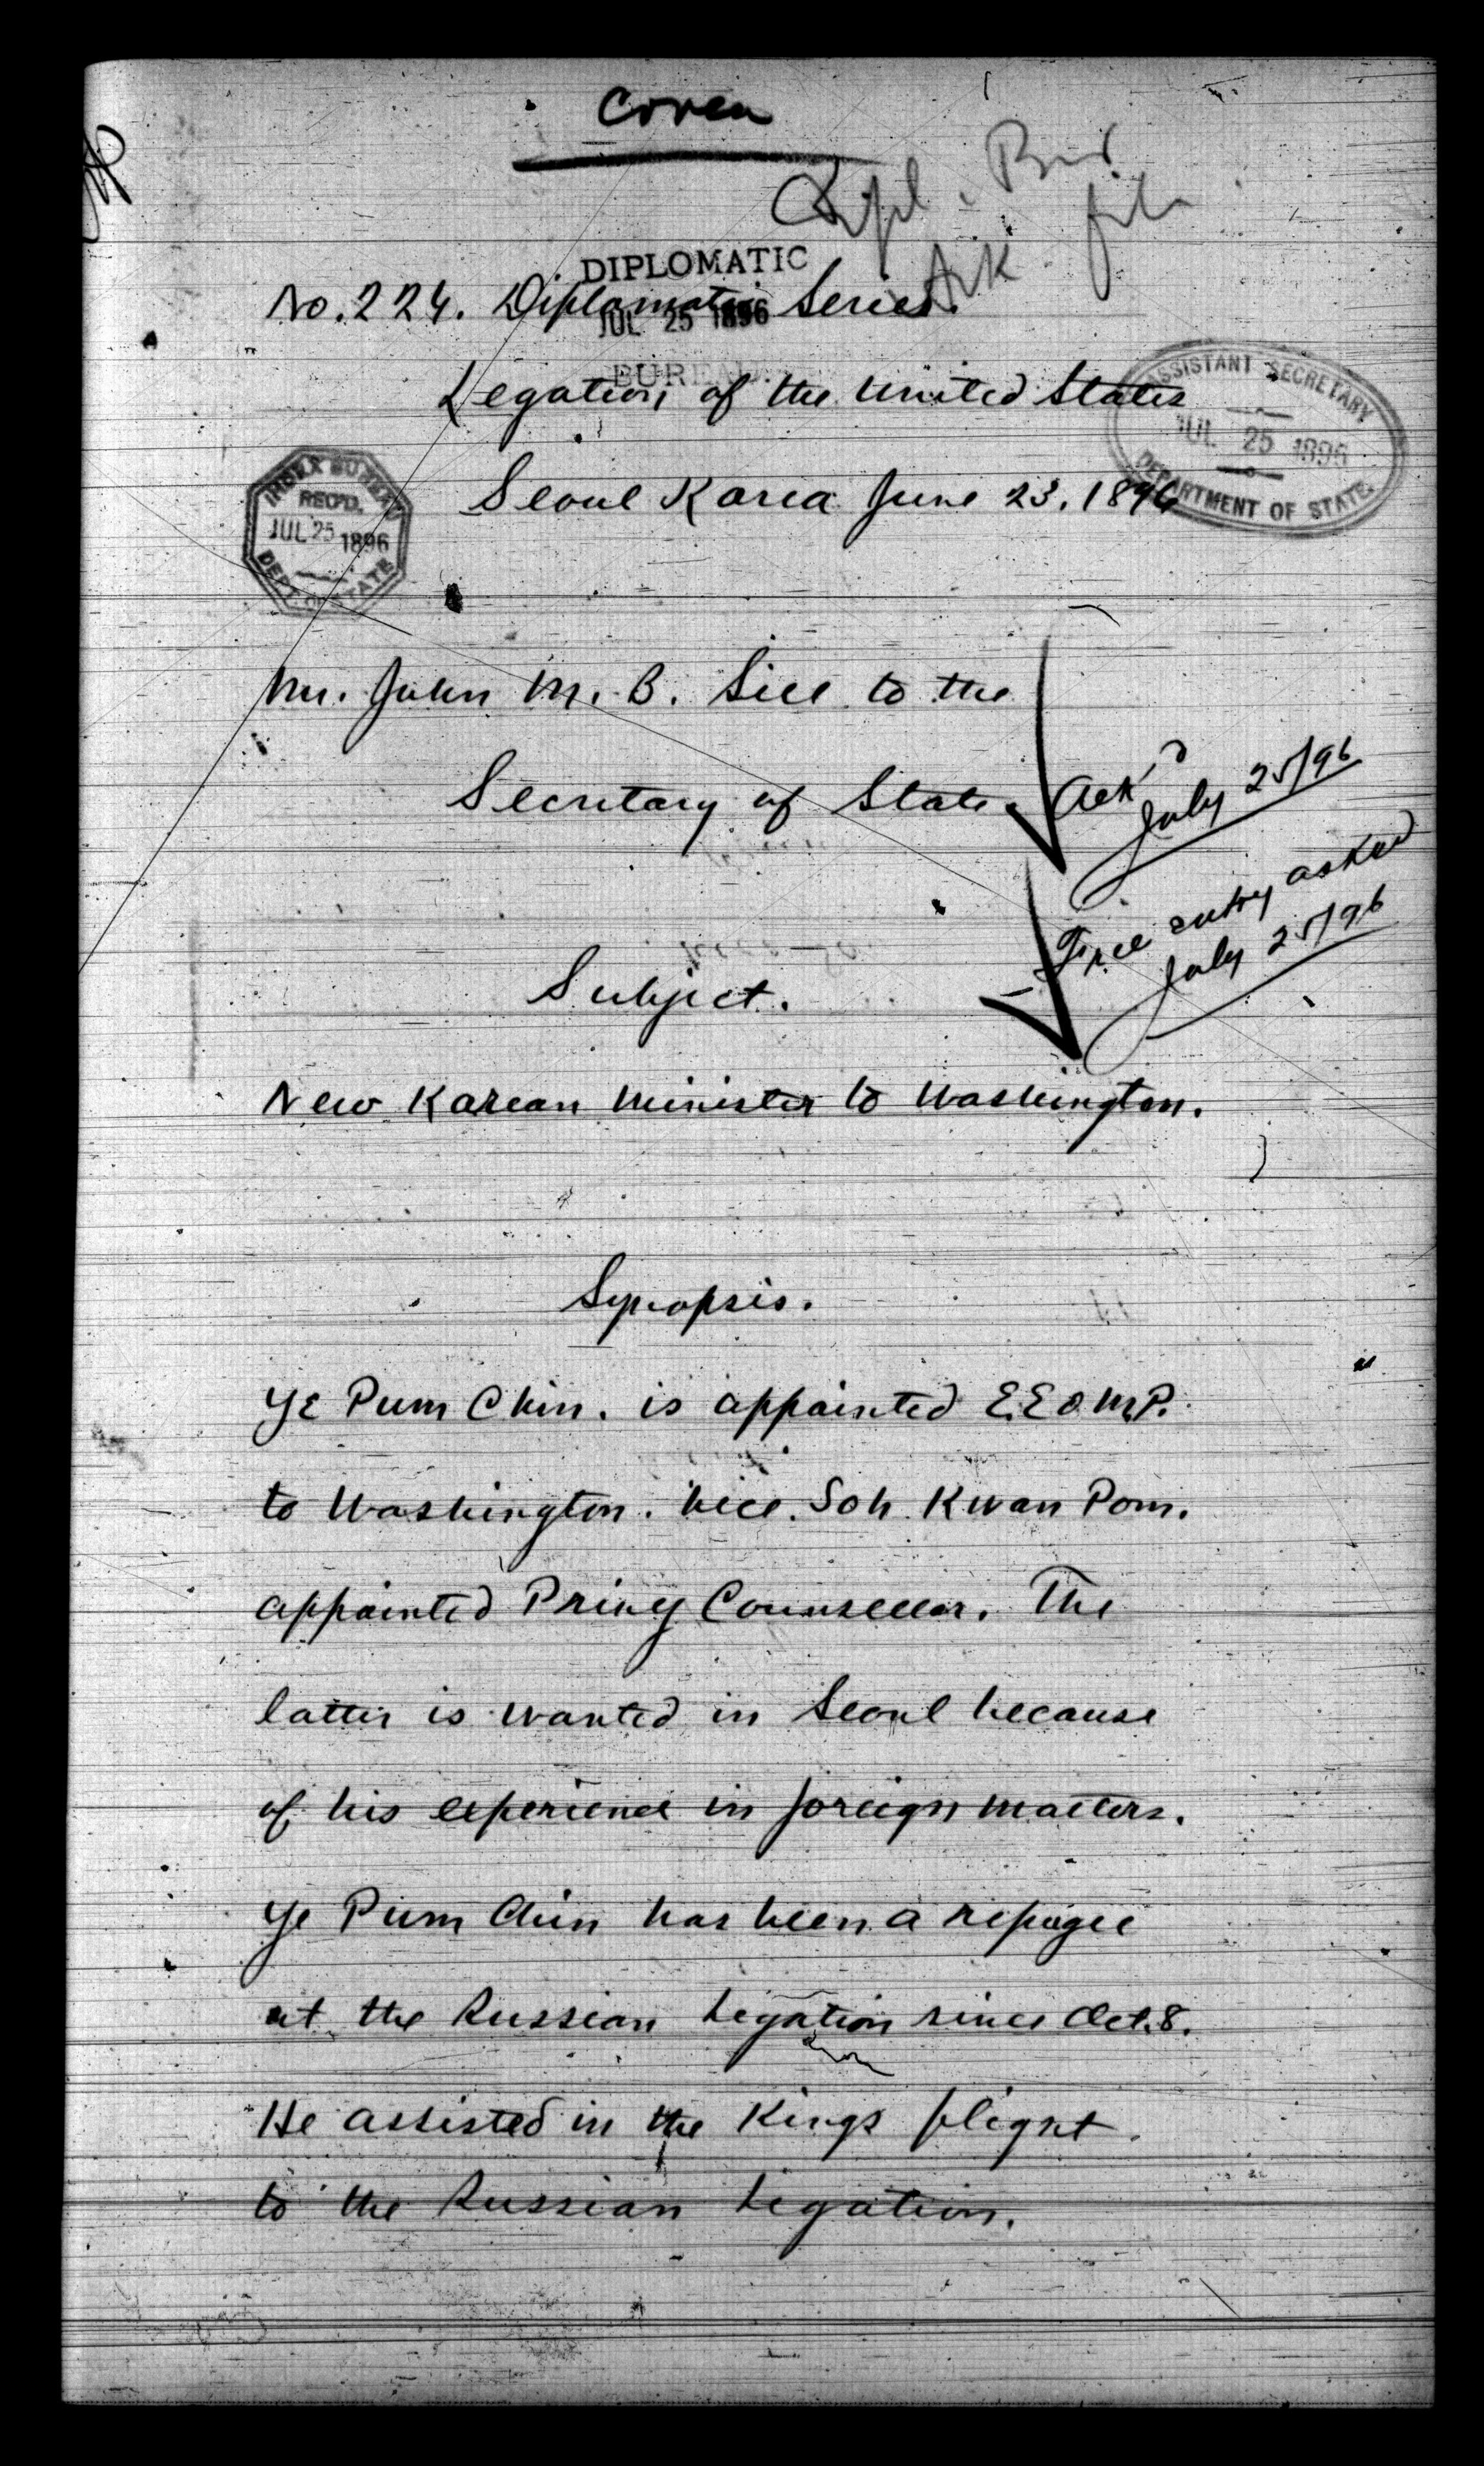 Corea
Dipl. Bur
Ack file
DIPLOMATIC
JUL 25 1896
BUREAU.
No. 224. Diplomatic Series.
Legation of the United States
ASSISTANT SECRETARY
JUL 25 1896
DEPARTMENT OF STATE.
Seoul Korea June 23, 1896
INDEX BUREAU
REC'D.
JUL 25 1896
DEPT. OF STATE
Mr. John M. B. Sill to the
Secretary of State.
Ack'd
July 25/96
Free entry asked
July 25/96
Subject.
New Korean Minister to Washington.
Synopsis.
Ye Pum Chin. is appointed E.E & M.P.
to Washington. vice. Soh Kwan Pom.
appointed Privy Counsellor. The
latter is wanted in Seoul because
of his experience in foreign matters.
Ye Pum Chin has been a refugee
at the Russian Legation since Oct. 8.
He assisted in the Kings flight
to the Russian Legation.